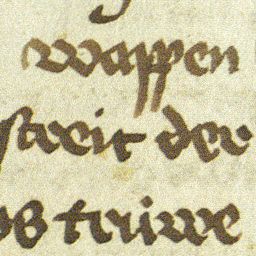 wappen
streit der
os trüwe